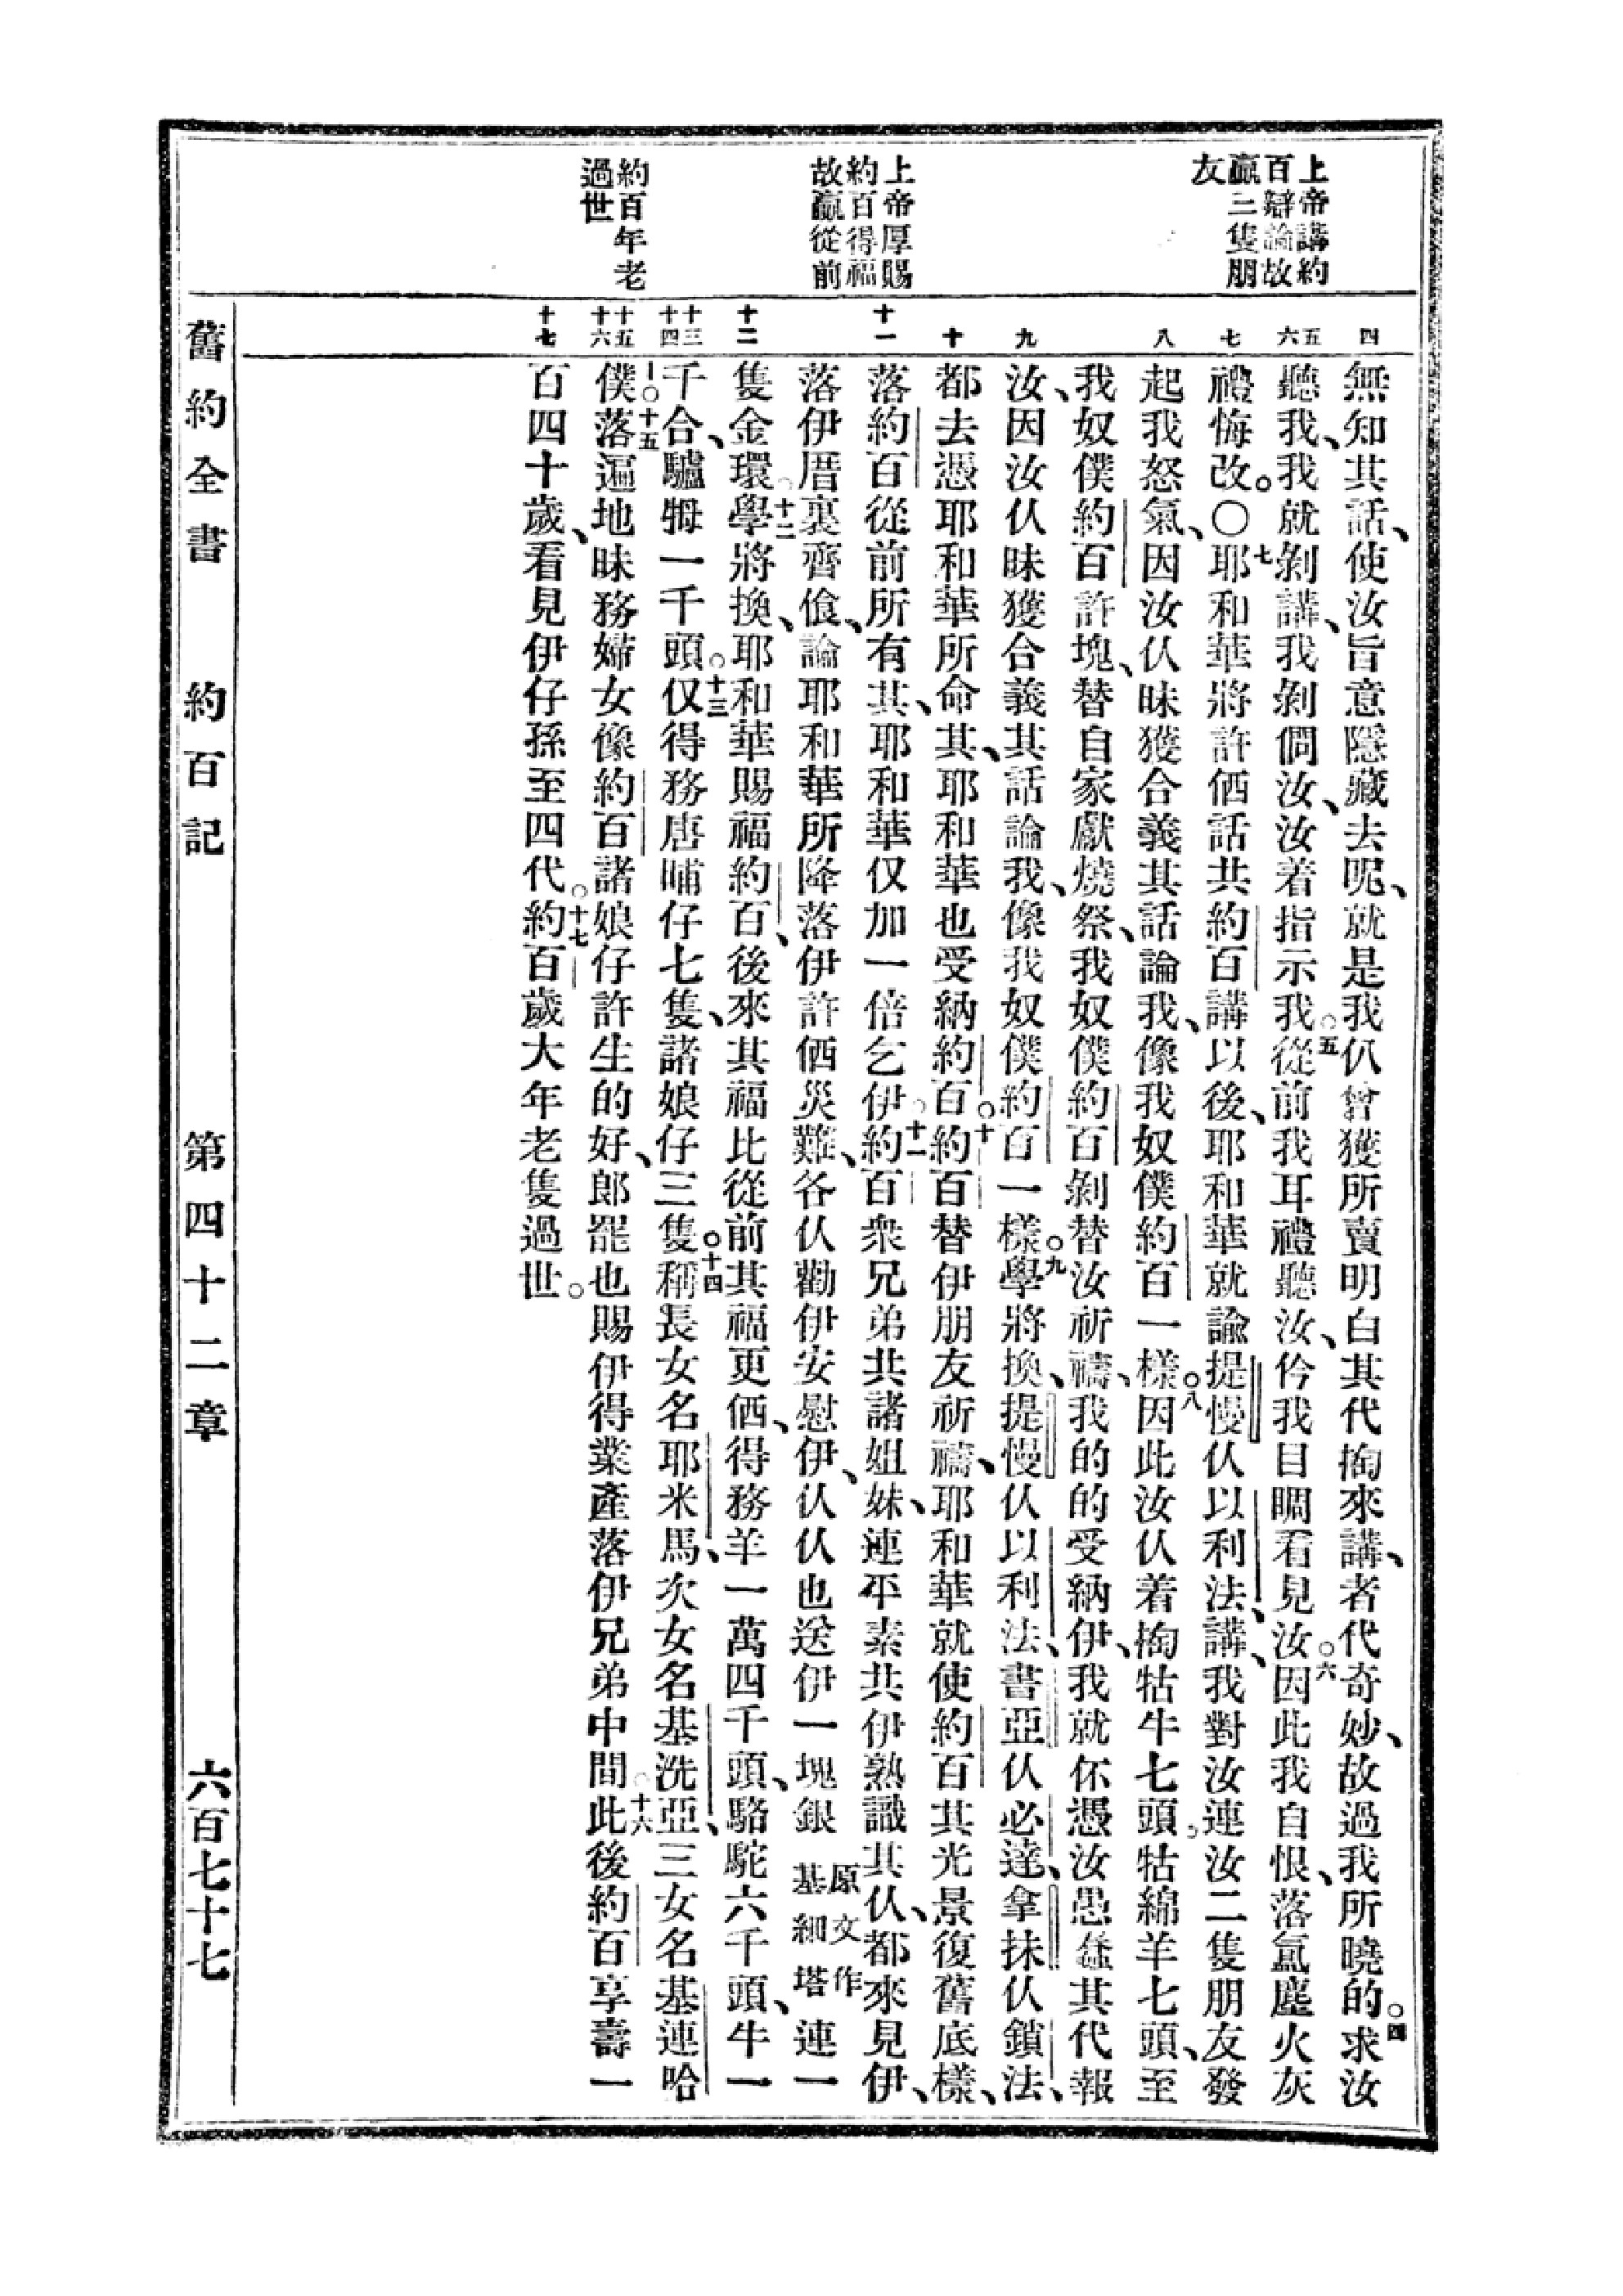 上帝講約
百辯論故
贏二隻朋
友
上帝厚賜
約百得福
故贏從前
約百年老
過世
四
五
六
七
八
九
十
十一
十二
十三
十四
十五
十六
十七
無知其話、使汝旨意隱藏去呢、就是我仈曾獲所賣明白其代掏來講、者代奇妙、故過我所曉的。四求汝
聽我、我就剝講、我剝問汝、汝着指示我。五從前我耳禮聽汝、仱我目睭看見汝。六因此我自恨、落㙈塵火灰
禮悔改。〇七耶和華將許仴話共約百講以後、耶和華就諭提慢仈以利法、講、我對汝連汝二隻朋友發
起我怒氣、因汝仈昧獲合義其話論我、像我奴僕約百一樣。八因此汝仈着掏牯牛七頭、牯綿羊七頭、至
我奴僕約百許塊、替自家獻燒祭、我奴僕約百剝替汝祈禱、我的的受納伊、我就伓憑汝愚蠢其代報
汝、因汝仈昧獲合義其話論我、像我奴僕約百一樣。九學將換、提慢仈以利法、書亞仈必達、拿抹仈鎖法、
都去憑耶和華所命其、耶和華也受納約百。十約百替伊朋友祈禱、耶和華就使約百其光景復舊底樣、
落約百從前所有其、耶和華仅加一倍乞伊。十一約百衆兄弟共諸姐妹、連平素共伊熟識其仈、都來見伊、
落伊厝裏齊飧、論耶和華所降落伊許仴災難、各仈勸伊安慰伊、仈仈也送伊一塊銀原文作基細塔連一
隻金環。十二學將換、耶和華賜福約百、後來其福比從前其福更仴、得務羊一萬四千頭、駱駝六千頭、牛一
千合、驢牳一千頭。十三仅得務唐晡仔七隻、諸娘仔三隻。十四稱長女名耶米馬、次女名基洗亞、三女名基連哈
僕。十五落遍地昧務婦女像約百諸娘仔許生的好、郎罷也賜伊得業產落伊兄弟中間。十六此後約百享壽一
百四十歲、看見伊仔孫至四代。十七約百歲大年老隻過世。
舊約全書 約百記 第四十二章 六百七十七